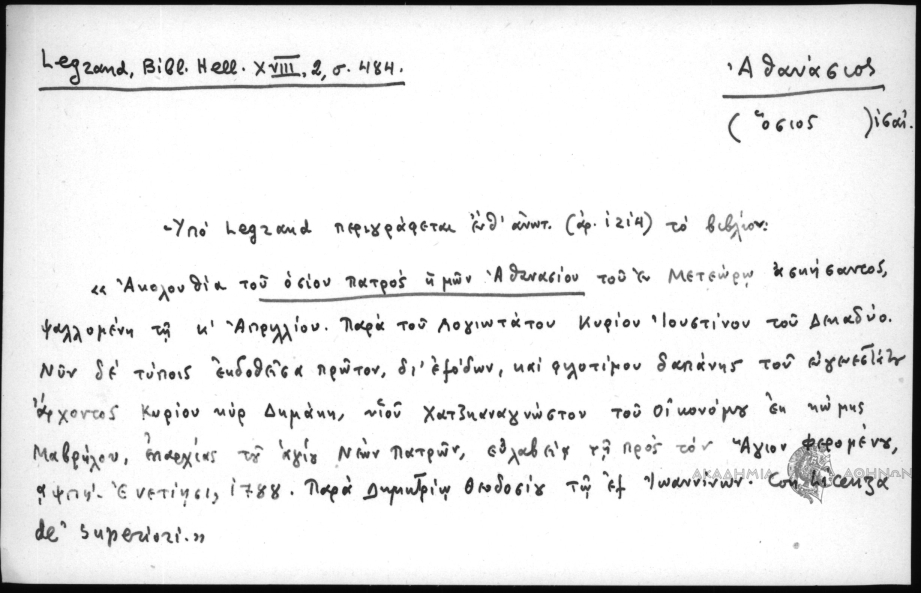 Legrand, Bibl. Hell. XVIII, 2, σ. 484.
Ἀθανάσιος
(ὅσιος )
Ὑπὸ Legrand περιγράφεται ἐνθ' ἀνωτ. (ἀρ. 1214) τὸ βιβλίον:
« Ἀκολουθία τοῦ ὁσίου πατρὸς ἡμῶν Ἀθανασίου τοῦ ἐν Μετεώρῳ ἀσκήσαντος,
ψαλλομένη τῇ κ' Ἀπριλλίου. Παρὰ τοῦ Λογιωτάτου Κυρίου Ἰουστίνου τοῦ Δεκαδύο.
Νῦν δὲ τύποις ἐκδοθεῖσα πρῶτον, δι' ἐξόδων, καὶ φιλοτίμου δαπάνης τοῦ εὐγενεστάτου
ἄρχοντος Κυρίου κὺρ Δημάκη, υἱοῦ Χατζηαναγνώστου τοῦ Οἰκονόμου ἐκ κώμης
Μαβρήλου, ἐπαρχίας τοῦ ἁγίου Νέων Πατρῶν, εὐλαβείᾳ τῇ πρὸς τὸν Ἅγιον φερομένου,
͵αψπη'. Ἐνετίησι, 1788. Παρὰ Δημητρίῳ Θεοδοσίου τῷ ἐξ Ἰωαννίνων. Con Licenza
de' Superiori.»
ΑΚΑΔΗΜΙΑ ΑΘΗΝΩΝ